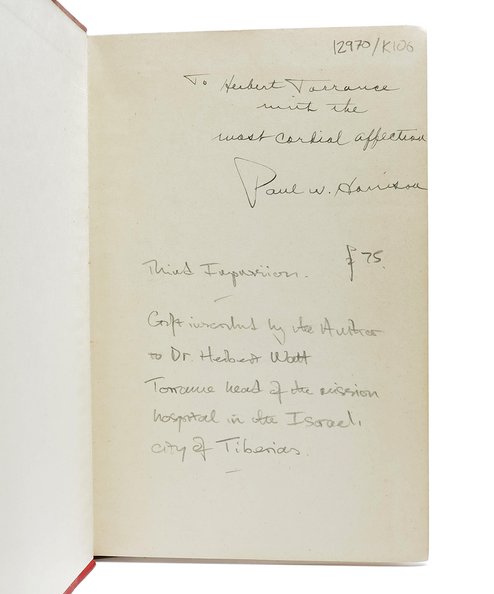 12970/K106
To Herbert Torrance
with the
most cordial affection
Paul W. Harrison
£75.
Third Impression.
Gift inscribed by the Author
to Dr. Herbert Watt
Torrance head of the mission
hospital in the Israel,
city of Tiberias.